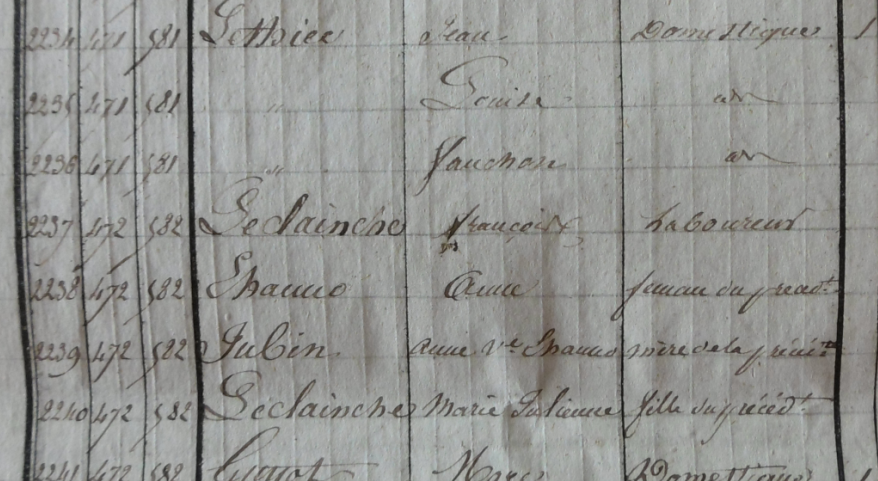 2234 471 581 Lethiec Jean Domestique 1
2235 471 581 " Louise
2236 471 581 " fanchon
2237 472 582 Leclainche françois Laboureur
2238 472 582 Thauno Anne femme du précédt
2239 472 582 Jubin Anne Ve Thauno mère de la précédte
2240 472 582 Leclainche Marie Julienne fille du précédt
2241 472 582 Guyot Marc Domestique 1